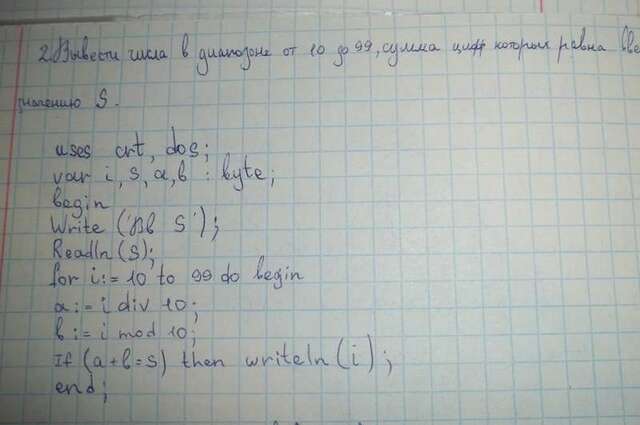 2. Вывести числа в диапозоне от 10 до 99, сумма цифр которых равна
значению S.
uses crt, dos;
var i, s, a, b : byte;
begin
Write ('Вв S');
Readln (S);
for i:= 10 to 99 do begin
a:= i div 10;
b:= i mod 10;
If (a+b=s) then writeln (i);
end;